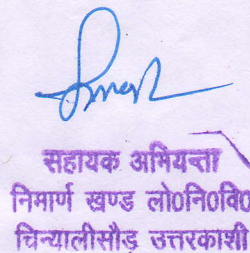 सहायक अभियन्ता
निमार्ण खण्ड लो0नि0वि0
चिन्यालीसौड़ उत्तरकाशी